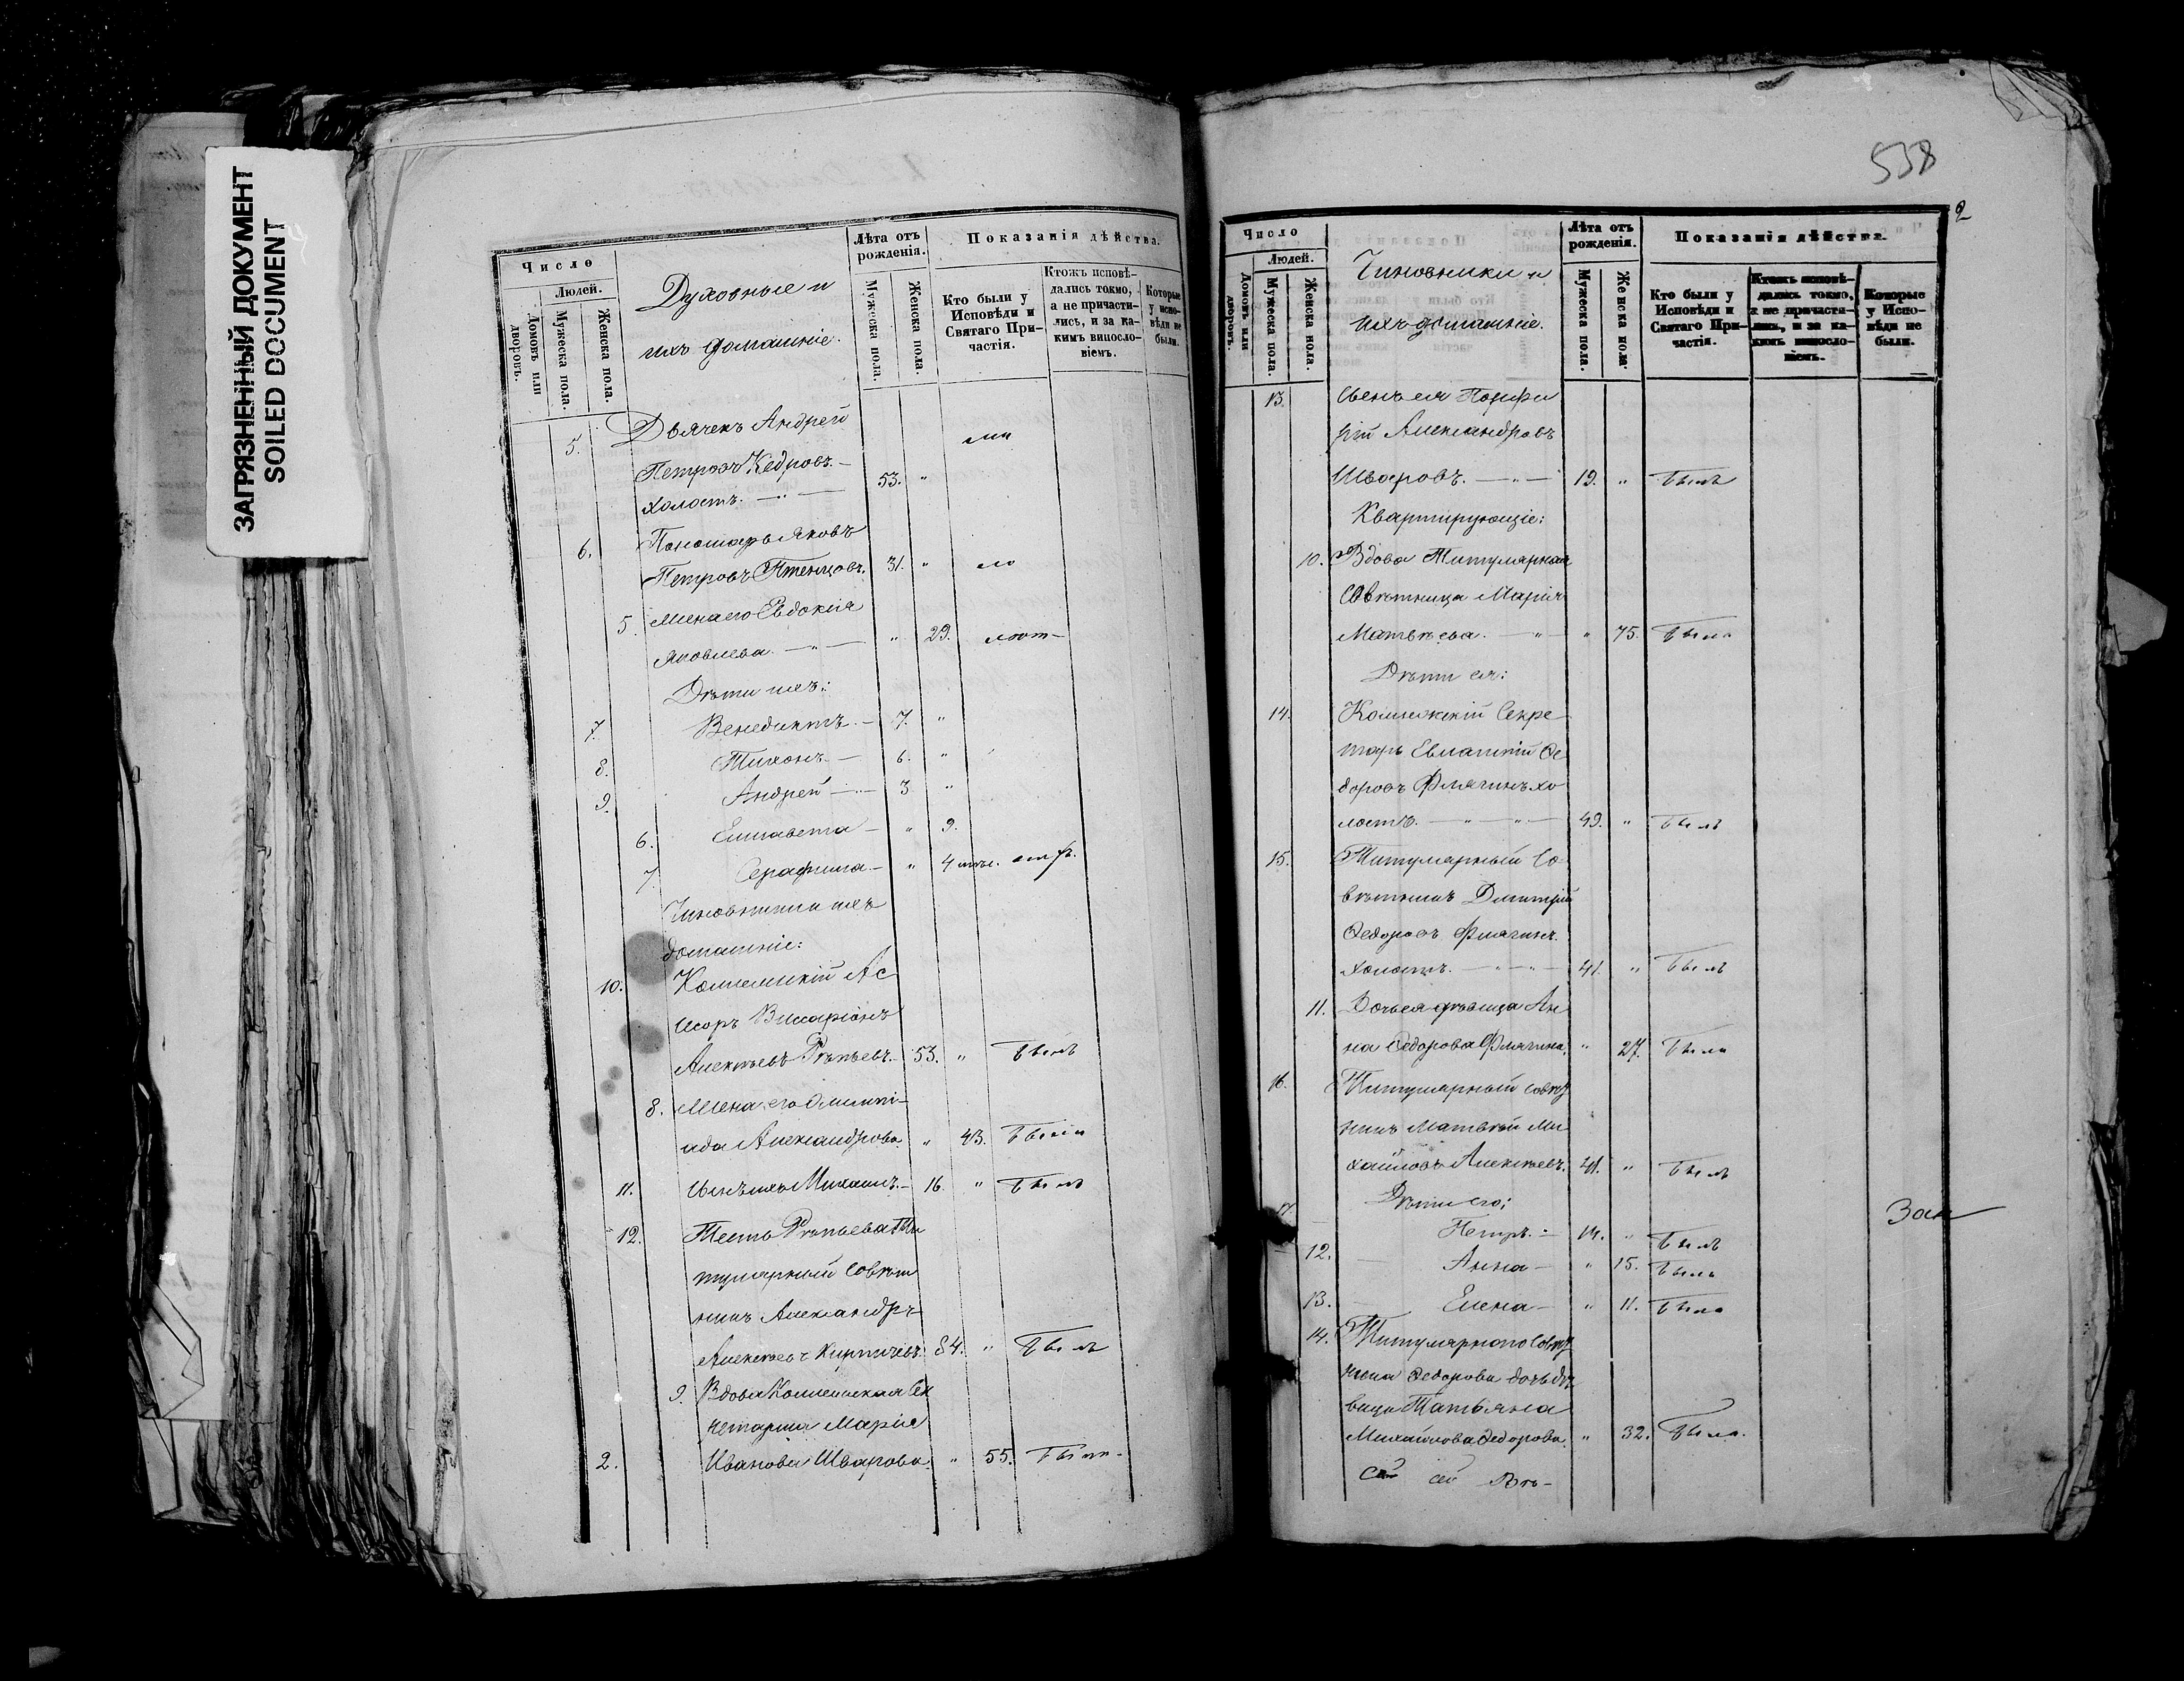 ЗАГРЯЗНЕННЫЙ ДОКУМЕНТ
SOILED DOCUMENT
Число
Людей.
Домовъ или дворовъ.
Мужеска пола.
Женска пола.
Духовные и
ихъ домашніе.
Лѣта отъ рожденія.
Мужеска пола.
Женска пола.
Показанія дѣйства.
Кто были у Исповѣди и Святаго Причастія.
Ктожъ исповѣдались токмо, а не причастились, и за какимъ винословіемъ.
Которые у исповѣди не были.
5. Дьячекъ Андрей
Петровъ Кедровъ. –
холостъ. – „ – 53. „
6. Пономарь Яковъ
Петровъ Птенцовъ. 31. „
5. Жена его Евдокія
Яковлева. – „ – „ 29.
Дѣти ихъ:
7. Венедиктъ. – 7. „
8. Тихонъ. – 6. „
9. Андрей – „ – 3 „
6. Елисавета – „ 9.
7 Серафима – „ 4
Чиновники и ихъ
домашніе:
10. Коллежскій Ас
сесоръ Виссаріонъ
Алексѣевъ Рѣпьевъ. 53. „ Былъ
8. Жена его Олимпі-
ада Александрова. „ 43. Была
11. Сынъ ихъ Михаилъ. – 16. „ Былъ
12. Тесть Рѣпьева Ти
тулярный Совѣт
никъ Александръ
Алексѣевъ Кирпичевъ. 84. „ Былъ
9. Вдова Коллежская Сек
ретарша Марія
2. Иванова Шварова. „ 55. Была
538
2
Число
Людей.
Домовъ или дворовъ.
Мужеска пола.
Женска пола.
Чиновники и
ихъ домашніе.
Лѣта отъ рожденія.
Мужеска пола.
Женска пола.
Показанія дѣйства.
Кто были у Исповѣди и Святаго Причастія.
Ктожъ исповѣдались токмо, а не причастились, и за какимъ винословіемъ.
Которые у Исповѣди не были.
13. Сынъ ея Порфи
рій Александровъ
Шваровъ. – „ – 19. „ Былъ
Квартирующіе:
10. Вдова Титулярная
Совѣтница Марія
Матвѣева. – „ – „ 75. Была
Дѣти ея:
14. Коллежскій Секре
тарь Евлампій Ѳе
доровъ Флягинъ хо
лостъ. – „ – „ – 49. „ Былъ
15. Титулярный Со
вѣтникъ Дмитрій
Ѳедоровъ Флягинъ.
холостъ. – „ – „ – 41. „ Былъ
11. Дочь ея дѣвица Ан
на Ѳедорова Флягина. „ 27. Была
16. Титулярный совѣт
никъ Матвѣй Ми
хайловъ Алексѣевъ. 41. „ Былъ
Дѣти его:
17. Петръ. – 14. „ Былъ
12. Анна – „ 15. Была
13. Елена – „ 11. Была
14. Титулярнаго Совѣт
ника Ѳедорова дочь дѣ
вица Татьяна
Михайлова Ѳедорова. „ 32. Была.